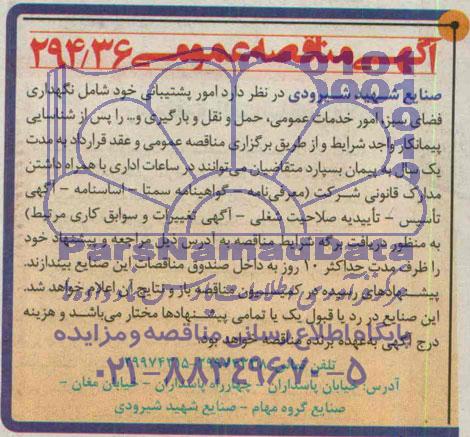 آگهی مناقصه عمومی ۲۹۴/۳۶
صنایع شهید شیرودی در نظر دارد امور پشتیبانی خود شامل نگهداری
فضای سبز، امور خدمات عمومی، حمل و نقل و بارگیری و... را پس از شناسایی
پیمانکار واجد شرایط و از طریق برگزاری مناقصه عمومی و عقد قرارداد به مدت
یک سال به پیمان بسپارد متقاضیان می‌توانند در ساعات اداری با همراه داشتن
مدارک قانونی شرکت (معرفی‌نامه – گواهینامه سمتا – اساسنامه – آگهی
تأسیس – تأییدیه صلاحیت شغلی – آگهی تغییرات و سوابق کاری مرتبط)
به منظور دریافت برگه شرایط مناقصه به آدرس ذیل مراجعه و پیشنهاد خود
را ظرف مدت حداکثر ۱۰ روز به داخل صندوق مناقصات این صنایع بیندازند.
پیشنهادهای رسیده در کمیسیون مناقصه باز و نتایج آن اعلام خواهد شد.
این صنایع در رد یا قبول یک یا تمامی پیشنهادها مختار می‌باشد و هزینه
درج آگهی به‌عهده برنده مناقصه خواهد بود.
تلفن تماس:
آدرس: خیابان پاسداران – چهارراه پاسداران – خیابان مغان –
صنایع گروه مهام – صنایع شهید شیرودی
ParsNamadData
پایگاه اطلاع رسانی مناقصه و مزایده
۰۲۱–۸۸۳۴۹۶۷۰–۵